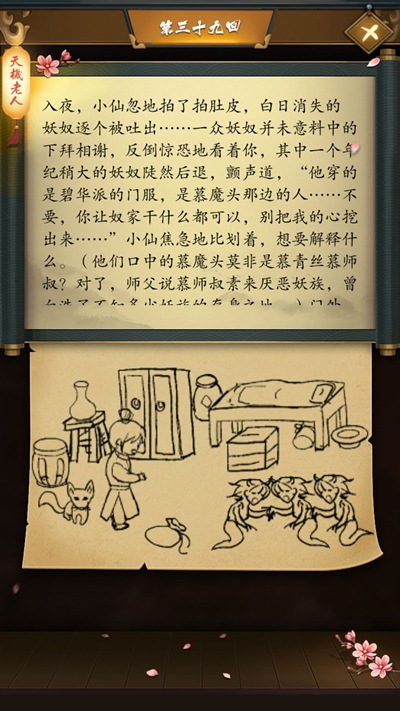 第三十九回
天機老人
入夜，小仙忽地拍了拍肚皮，白日消失的
妖奴逐个被吐出……一众妖奴并未意料中的
下拜相谢，反倒惊恐地看着你，其中一个年
纪稍大的妖奴陡然后退，颤声道，“他穿的
是碧华派的门服，是慕魔头那边的人……不
要，你让奴家干什么都可以，别把我的心挖
出来……”小仙焦急地比划着，想要解释什
么。（他们口中的慕魔头莫非是慕青丝慕师
叔？对了，师父说慕师叔素来厌恶妖族，曾